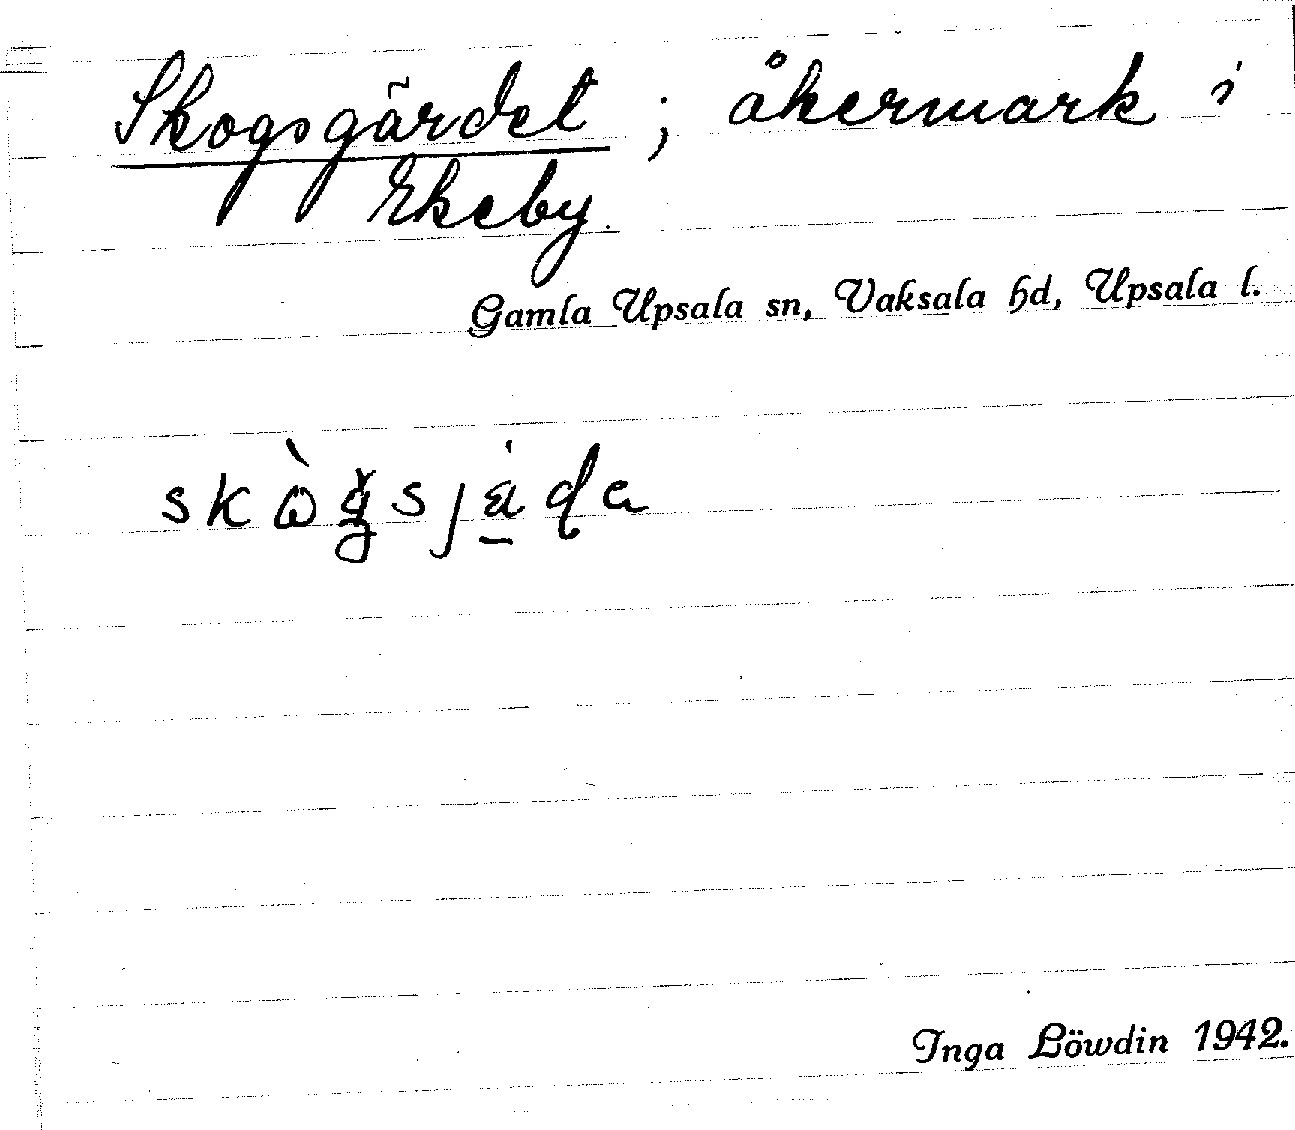 Skogsgärdet ; åkermark i
Ekeby.
Gamla Upsala sn, Vaksala hd, Upsala l.
Inga Löwdin 1942.